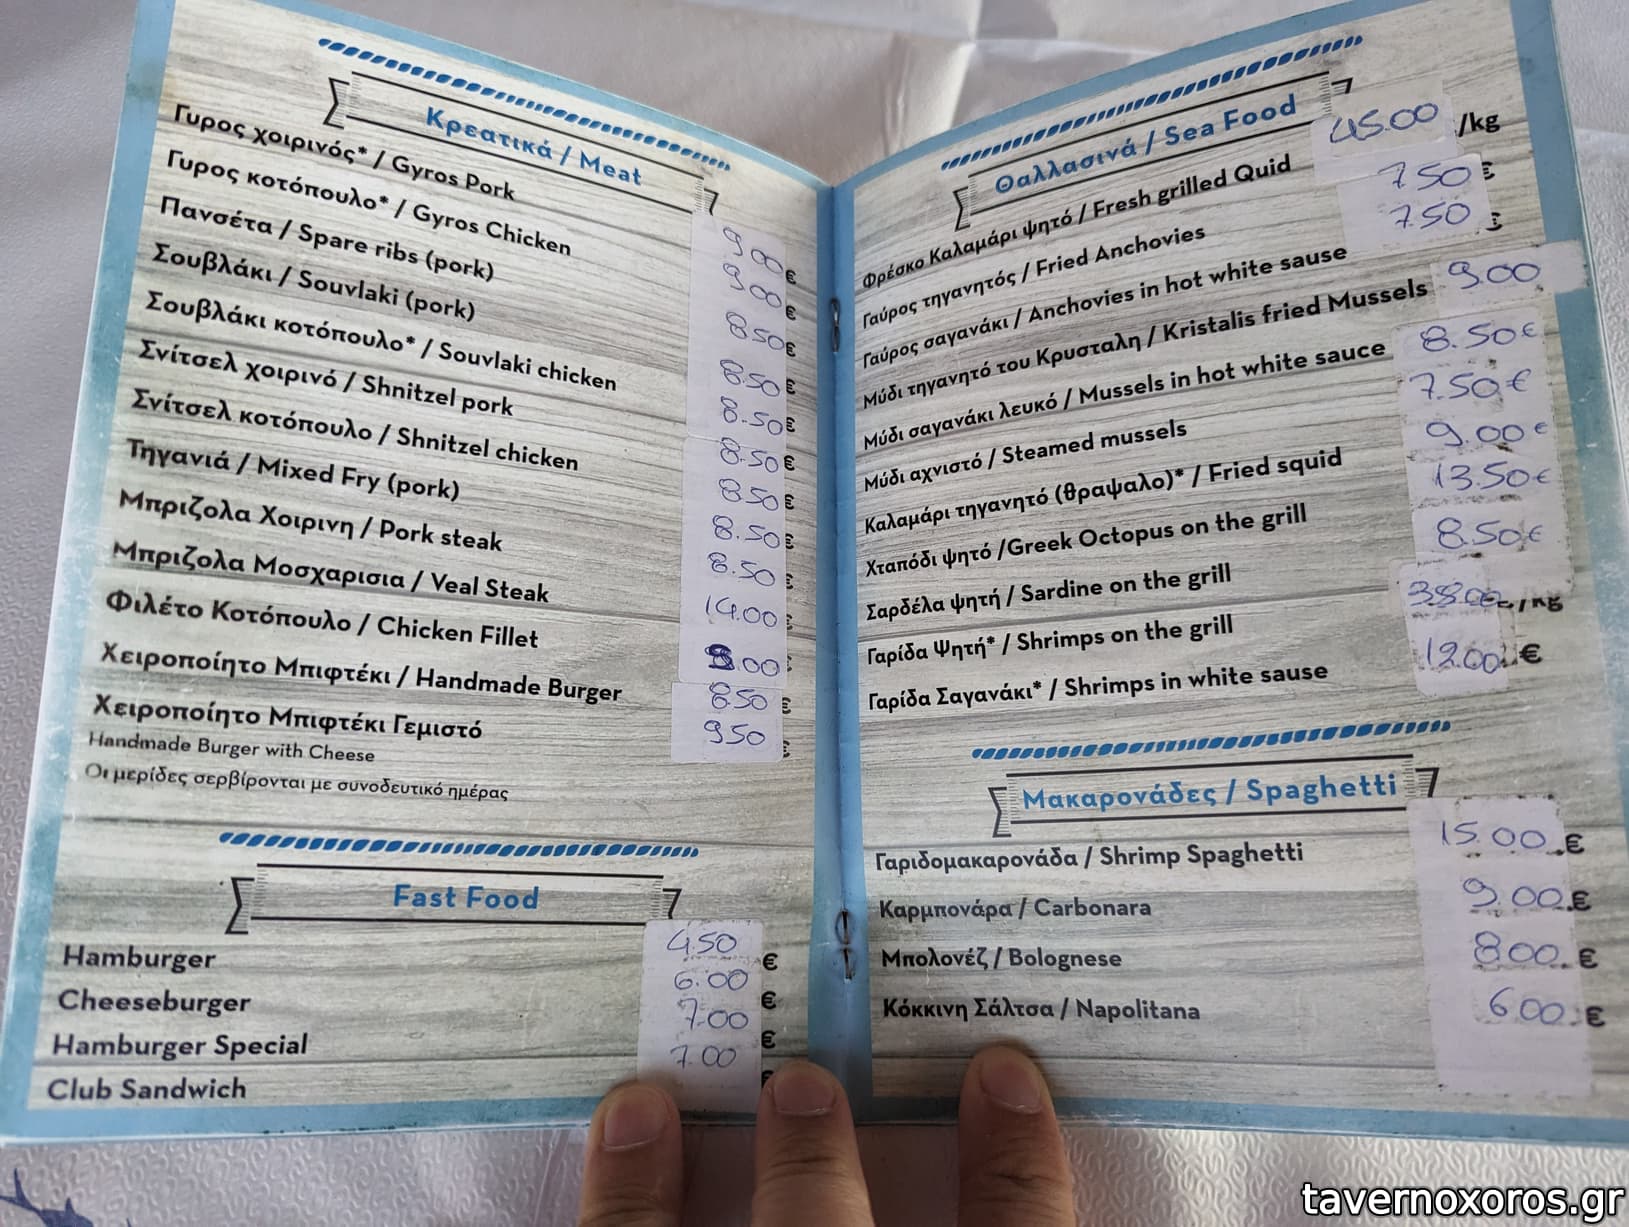 Κρεατικά / Meat
Γυρος χοιρινός* / Gyros Pork 9.00 €
Γυρος κοτόπουλο* / Gyros Chicken 9.00 €
Πανσέτα / Spare ribs (pork) 8.50 €
Σουβλάκι / Souvlaki (pork) 8.50 €
Σουβλάκι κοτόπουλο* / Souvlaki chicken 8.50 €
Σνίτσελ χοιρινό / Shnitzel pork 8.50 €
Σνίτσελ κοτόπουλο / Shnitzel chicken 8.50 €
Τηγανιά / Mixed Fry (pork) 8.50 €
Μπριζολα Χοιρινη / Pork steak 8.50 €
Μπριζολα Μοσχαρισια / Veal Steak 14.00 €
Φιλέτο Κοτόπουλο / Chicken Fillet .00 €
Χειροποίητο Μπιφτέκι / Handmade Burger 8.50 €
Χειροποίητο Μπιφτέκι Γεμιστό 9.50 €
Handmade Burger with Cheese
Οι μερίδες σερβίρονται με συνοδευτικό ημέρας
Fast Food
Hamburger 4.50 €
Cheeseburger 6.00 €
Hamburger Special 7.00 €
Club Sandwich 7.00 €
Θαλλασινά / Sea Food
Φρέσκο Καλαμάρι ψητό / Fresh grilled Quid 45.00 /kg
Γαύρος τηγανητός / Fried Anchovies 7.50 €
Γαύρος σαγανάκι / Anchovies in hot white sause 7.50 €
Μύδι τηγανητό του Κρυσταλη / Kristalis fried Mussels 9.00
Μύδι σαγανάκι λευκό / Mussels in hot white sauce 8.50 €
Μύδι αχνιστό / Steamed mussels 7.50 €
Καλαμάρι τηγανητό (θραψαλο)* / Fried squid 9.00 €
Χταπόδι ψητό /Greek Octopus on the grill 13.50 €
Σαρδέλα ψητή / Sardine on the grill 8.50 €
Γαρίδα Ψητή* / Shrimps on the grill 38.00 /kg
Γαρίδα Σαγανάκι* / Shrimps in white sause 12.00 €
Μακαρονάδες / Spaghetti
Γαριδομακαρονάδα / Shrimp Spaghetti 15.00 €
Καρμπονάρα / Carbonara 9.00 €
Μπολονέζ / Bolognese 8.00 €
Κόκκινη Σάλτσα / Napolitana 6.00 €
tavernoxoros.gr